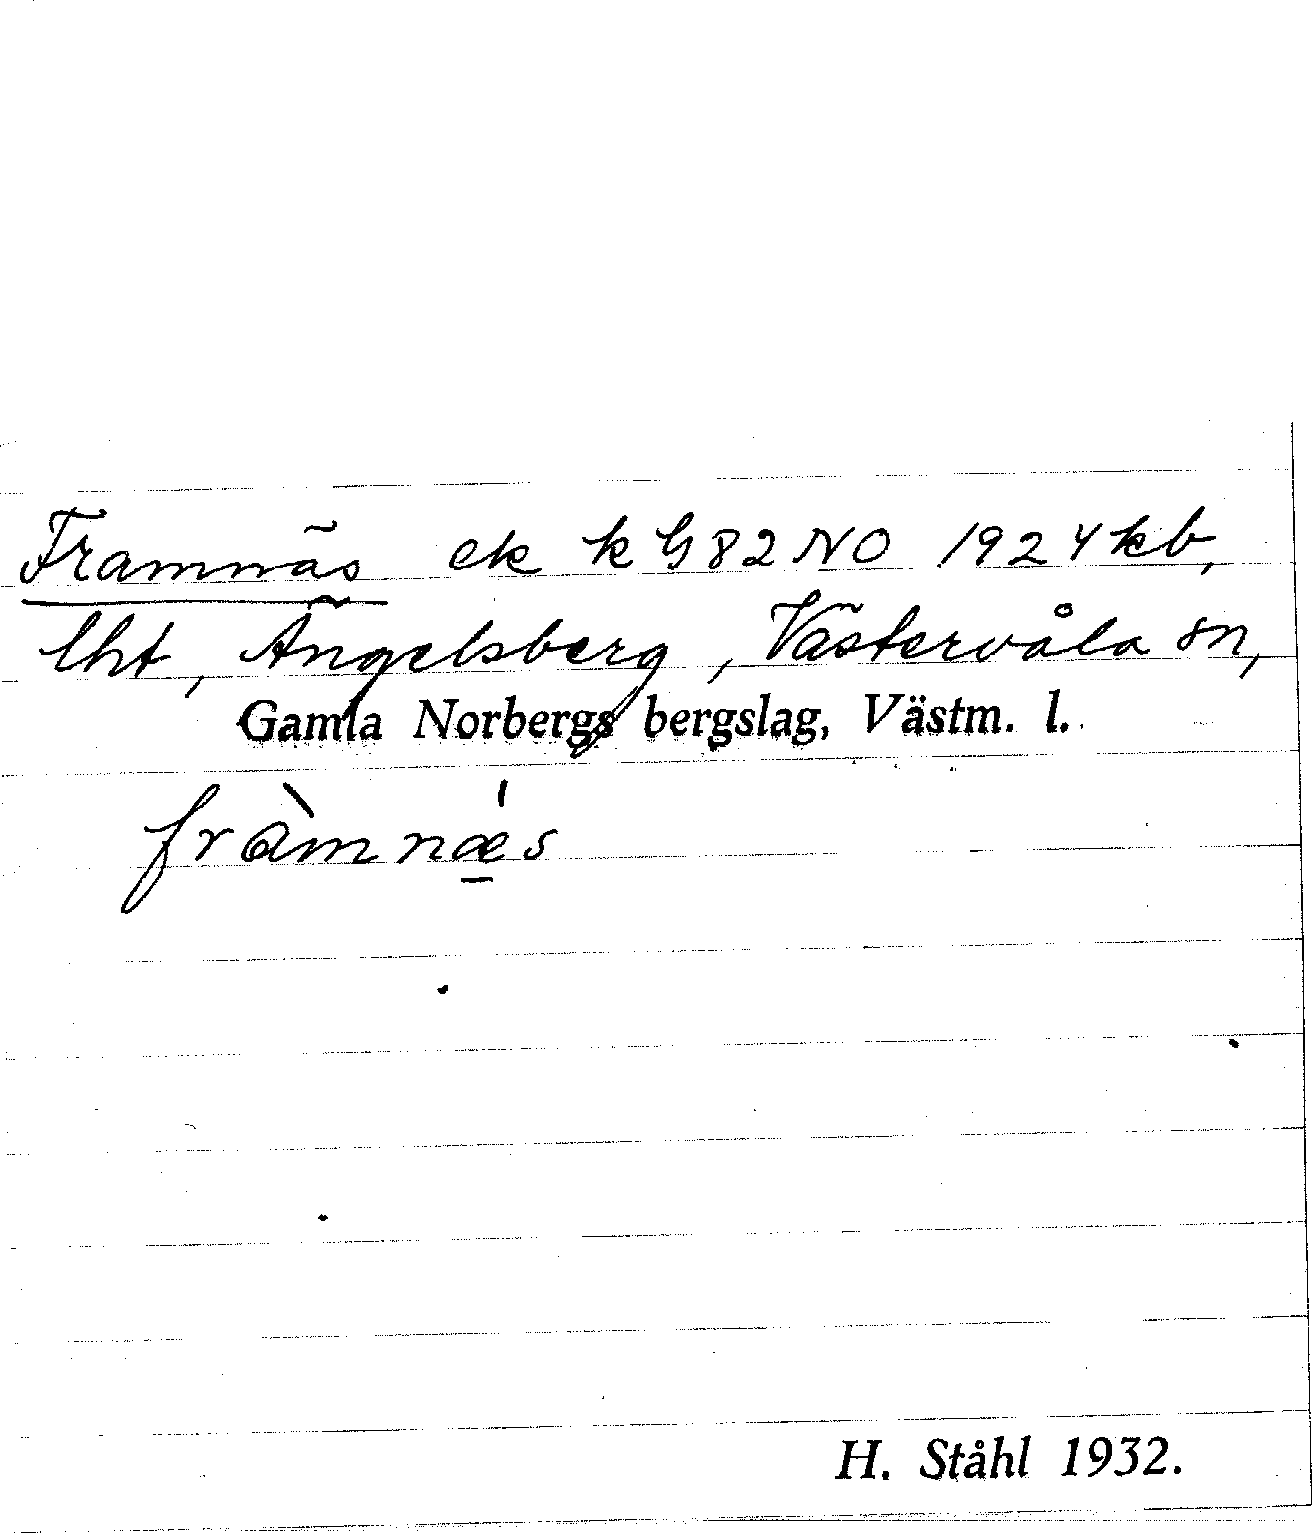 Framnäs ek k G 82 NO 1924 kb,
lht, Ängelsberg, Västervåla sn,
Gamla Norbergs bergslag, Västm. l.
fràmnǽs
H. Ståhl 1932.